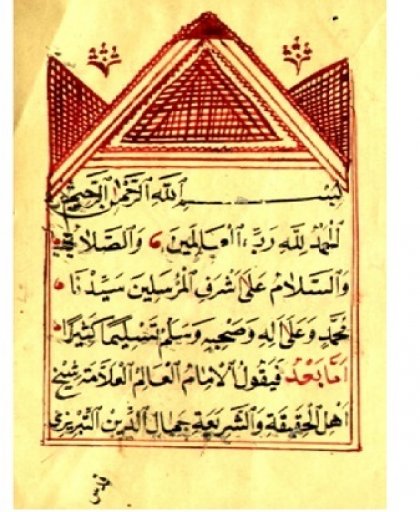 بِسْــــــــمِ اللّٰهِ الرَّحْمٰنِ الرَّحِيْمِ
الْحَمْدُ لِلّٰهِ رَبِّ الْعَالَمِيْنَ وَالصَّلَاةُ
وَالسَّلَامُ عَلَى اَشْرَفِ الْمُرْسَلِيْنَ سَيِّدِنَا
مُحَمَّدٍ وَعَلَى اٰلِهِ وَصَحْبِهِ وَسَلِّمْ تَسْلِيْمًا كَثِيْرًا
اَمَّا بَعْدُ فَيَقُوْلُ الْاِمَامُ الْعَالِمُ الْعَلَّامَةُ شَيْخُ
اَهْلِ الْحَقِيْقَةِ وَالشَّرِيْعَةِ جَمَالُ الدِّيْنِ التَّبْرِيْزِيْ